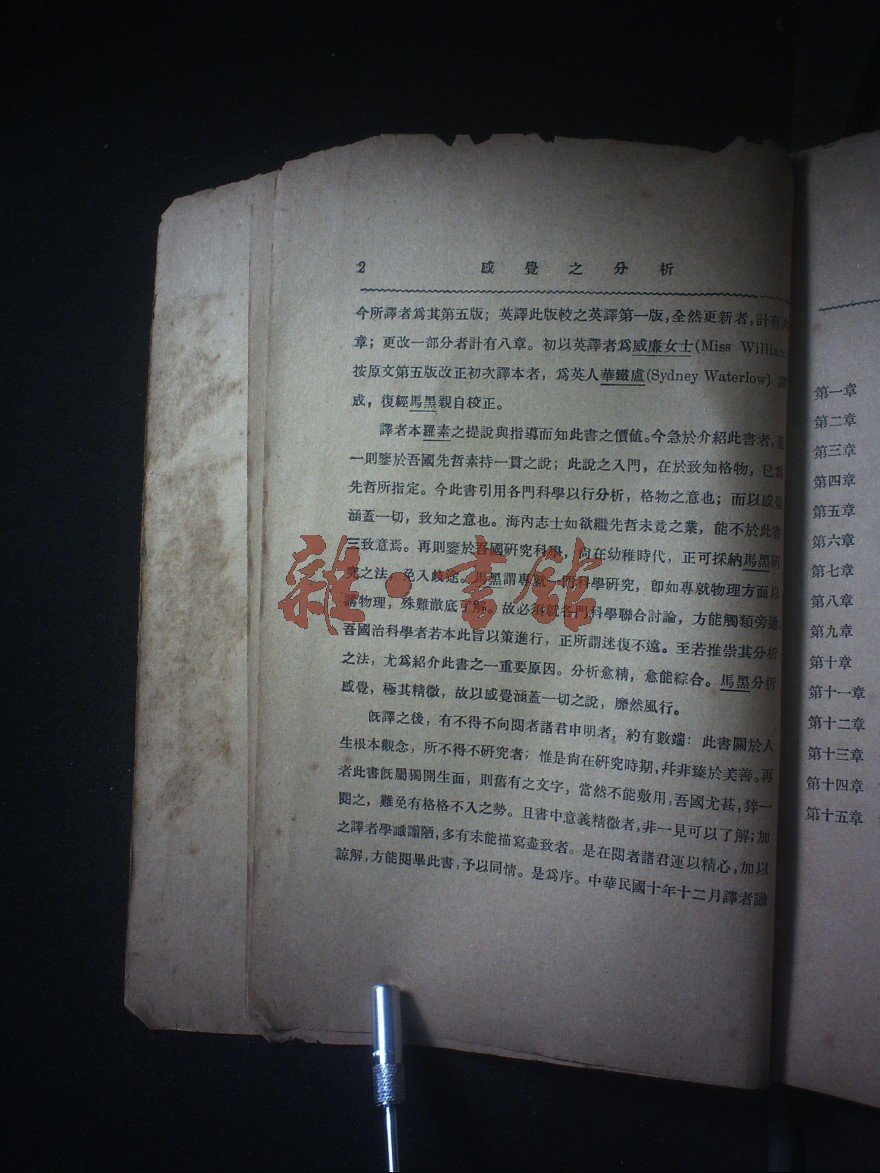 2 感覺之分析
今所譯者爲其第五版；英譯此版較之英譯第一版，全然更新者，計有
章；更改一部分者計有八章。初以英譯者爲威廉女士(Miss William
按原文第五版改正初次譯本者，爲英人華鐵盧(Sydney Waterlow).
成，復經馬黑親自校正。
譯者本羅素之提說與指導而知此書之價値。今急於介紹此書者，
一則鑒於吾國先哲素持一貫之說；此說之入門，在於致知格物，已
先哲所指定。今此書引用各門科學以行分析，格物之意也；而以感覺
涵蓋一切，致知之意也。海內志士如欲繼先哲未竟之業，能不於此書
三致意焉。再則鑒於吾國研究科學，尙在幼稚時代，正可採納馬黑研
究之法，免入歧途。馬黑謂專就一門科學研究，卽如專就物理方面以
講物理，殊難澈底了解。故必須就各門科學聯合討論，方能觸類旁通。
吾國治科學者若本此旨以策進行，正所謂迷復不遠。至若推崇其分析
之法，尤爲紹介此書之一重要原因。分析愈精，愈能綜合。馬黑分析
感覺，極其精微，故以感覺涵蓋一切之說，靡然風行。
旣譯之後，有不得不向閱者諸君申明者，約有數端：此書關於人
生根本觀念，所不得不研究者；惟是尙在研究時期，幷非臻於美善。再
者此書旣屬獨開生面，則舊有之文字，當然不能敷用，吾國尤甚，猝一
閱之，難免有格格不入之勢。且書中意義精微者，非一見可以了解；加
之譯者學識譾陋，多有未能描寫盡致者。是在閱者諸君運以精心，加以
諒解，方能閱畢此書，予以同情。是爲序。中華民國十年十二月譯者識
第一章
第二章
第三章
第四章
第五章
第六章
第七章
第八章
第九章
第十章
第十一章
第十二章
第十三章
第十四章
第十五章
雜·書館